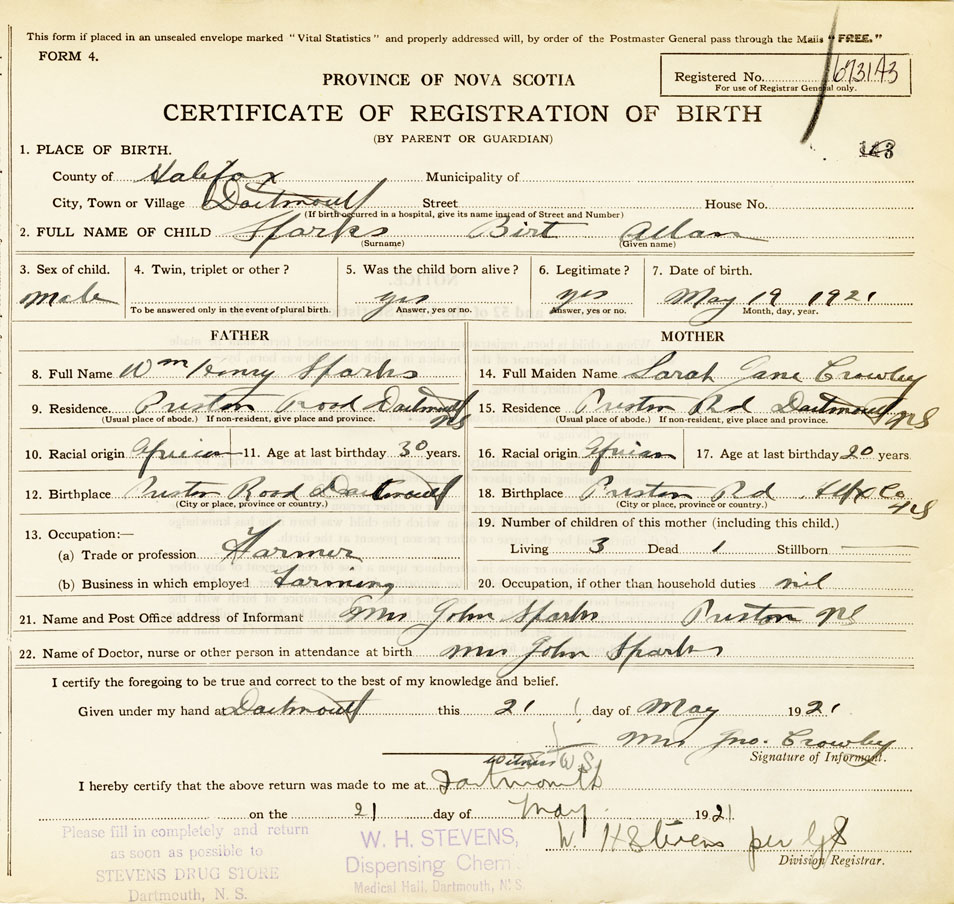 This form if placed in an unsealed envelope marked "Vital Statistics" and properly addressed will, by order of the Postmaster General pass through the Mails "FREE."
FORM 4.
PROVINCE OF NOVA SCOTIA
Registered No. 673143
For use of Registrar General only.
CERTIFICATE OF REGISTRATION OF BIRTH
(BY PARENT OR GUARDIAN)
1. PLACE OF BIRTH.
County of Halifax Municipality of
City, Town or Village Dartmouth Street House No.
(If birth occurred in a hospital, give its name instead of Street and Number)
2. FULL NAME OF CHILD Sparks Birt Allan
(Surname) (Given name)
3. Sex of child. 4. Twin, triplet or other? 5. Was the child born alive? 6. Legitimate? 7. Date of birth.
Male yes yes May 19 1921
To be answered only in the event of plural birth. Answer, yes or no. Answer, yes or no. Month, day, year.
FATHER MOTHER
8. Full Name Wm Henry Sparks 14. Full Maiden Name Sarah Jane Crowley
9. Residence. Preston Road Dartmouth NS 15. Residence Preston Rd Dartmouth NS
(Usual place of abode.) If non-resident, give place and province. (Usual place of abode.) If non-resident, give place and province.
10. Racial origin African 11. Age at last birthday 30 years. 16. Racial origin African 17. Age at last birthday 20 years
12. Birthplace Preston Road Dartmouth 18. Birthplace Preston Rd Hfx Co NS
(City or place, province or country.) (City or place, province or country.)
19. Number of children of this mother (including this child.)
13. Occupation:—
(a) Trade or profession Farmer Living 3 Dead 1 Stillborn
(b) Business in which employed Farming 20. Occupation, if other than household duties nil
21. Name and Post Office address of Informant Mrs John Sparks Preston NS
22. Name of Doctor, nurse or other person in attendance at birth Mrs John Sparks
I certify the foregoing to be true and correct to the best of my knowledge and belief.
Given under my hand at Dartmouth this 21 day of May 1921
Mrs Jno. Crowley
Signature of Informant.
Witness W S
I hereby certify that the above return was made to me at Dartmouth
on the 21 day of May 1921
W. H Stevens per
Division Registrar.
Please fill in completely and return
as soon as possible to
STEVENS DRUG STORE
Dartmouth, N. S.
W. H. STEVENS,
Dispensing Chem.
Medical Hall, Dartmouth, N. S.